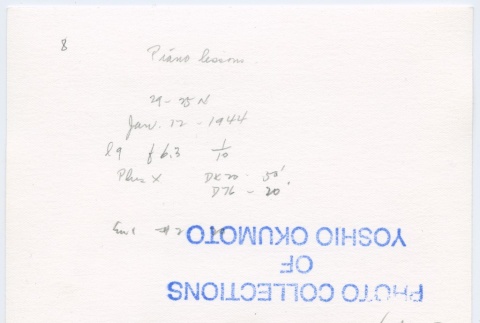 8
Piano lessons.
29-25 N
Jan. 12 - 1944
l9 f 6.3 1/10
Plus X DK20 - 50'
D76 - 20'
#2
PHOTO COLLECTIONS
OF
YOSHIO OKUMOTO